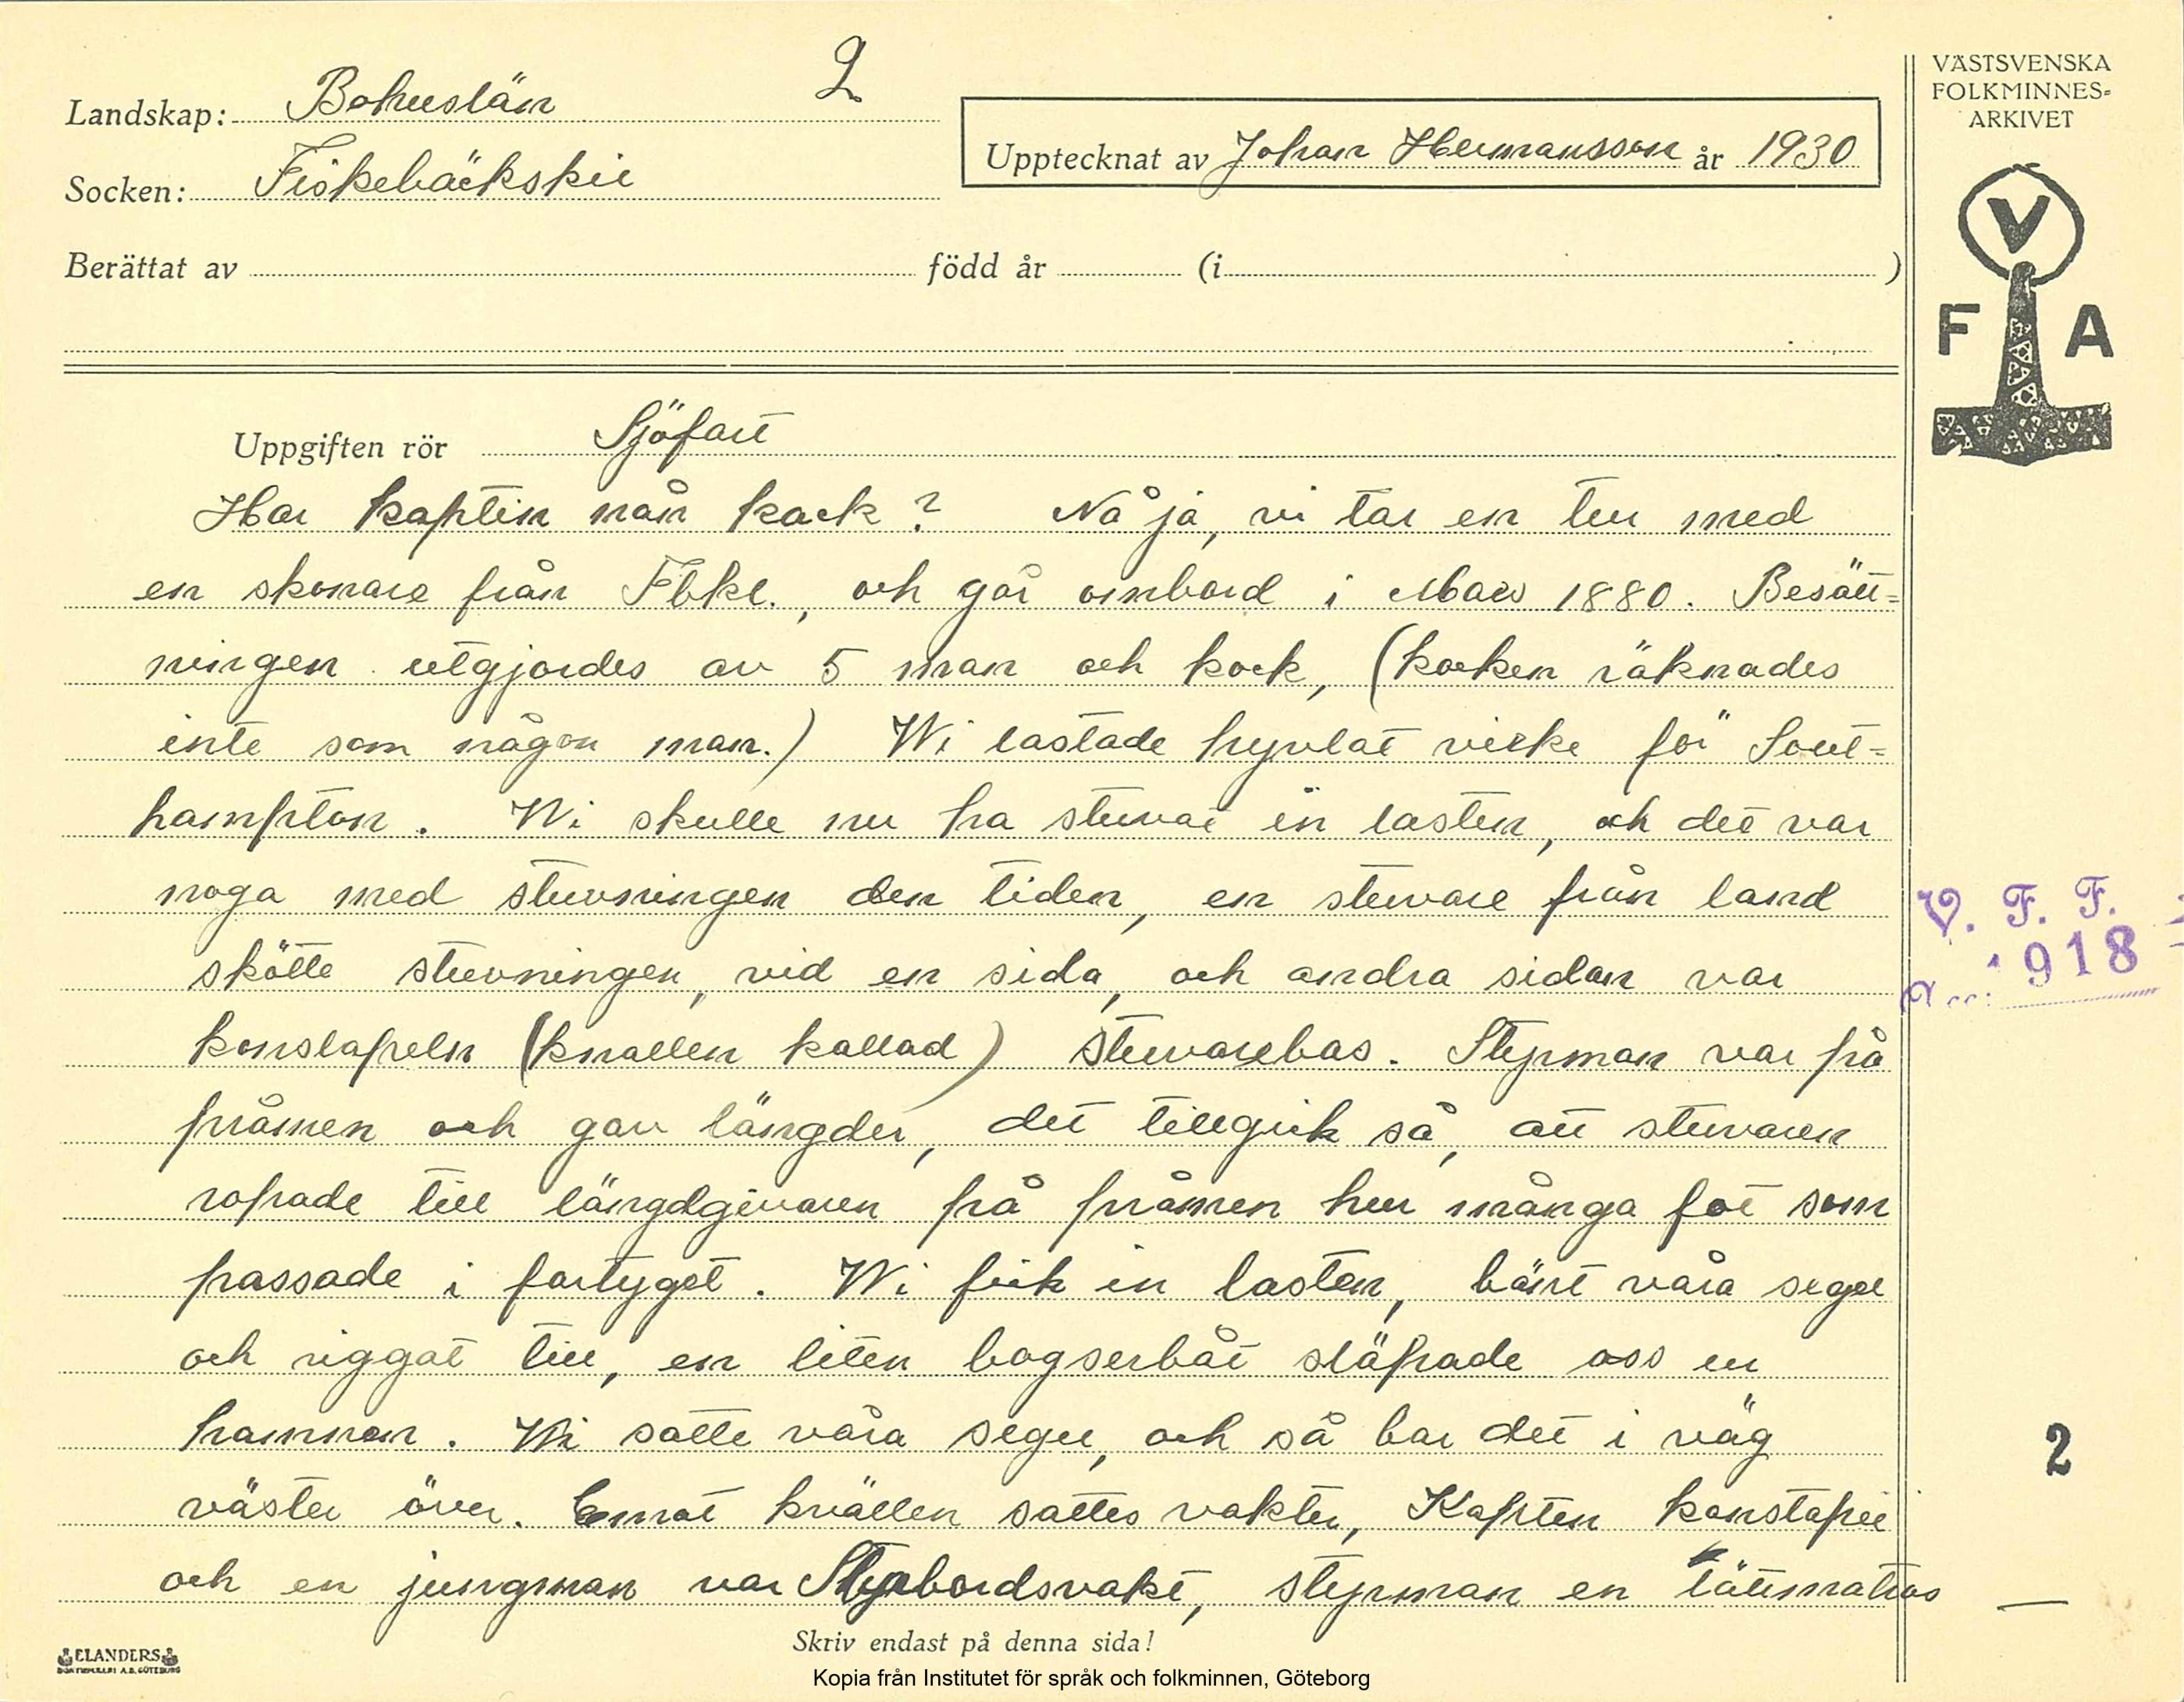 2
Landskap: Bohuslän
Socken: Fiskebäckskil
Upptecknat av Johan Hermansson år 1930
Berättat av född år (i )
VÄSTSVENSKA
FOLKMINNES-
ARKIVET
V
F A
Uppgiften rör Sjöfart
Har kaptin nån kock? Nå ja, vi tar en tur med
en skonare från Fbkl., och går ombord i Mars 1880. Besätt-
ningen utgjordes av 5 man och kock, (kocken räknades
inte som någon man.) Wi lastade hyvlat virke för Sout-
hampton. Wi skulle nu ha stuvat in lasten, och det var
noga med stuvningen den tiden, en stuvare från land
skötte stuvningen, vid en sida, och andra sidan var
konstapeln (knallen kallad) stuvarebas. Styrman var på
pråmen och gav längder, det tillgick så, att stuvaren
ropade till längdgivaren på pråmen hur många fot som
passade i fartyget. Wi fick in lasten, bänt våra segel
och riggat till, en liten bogserbåt släpade oss ur
hamnen. Wi satte våra segel, och så bar det i väg
väster över. Emot kvällen sattes vakter, Kapten konstapel
och en jungman var Styrbordsvakt, styrman en lättmatros
V. F. F.
918
2
Skriv endast på denna sida!
ELANDERS
BOKTRYCKERI A.B. GÖTEBORG
Kopia från Institutet för språk och folkminnen, Göteborg